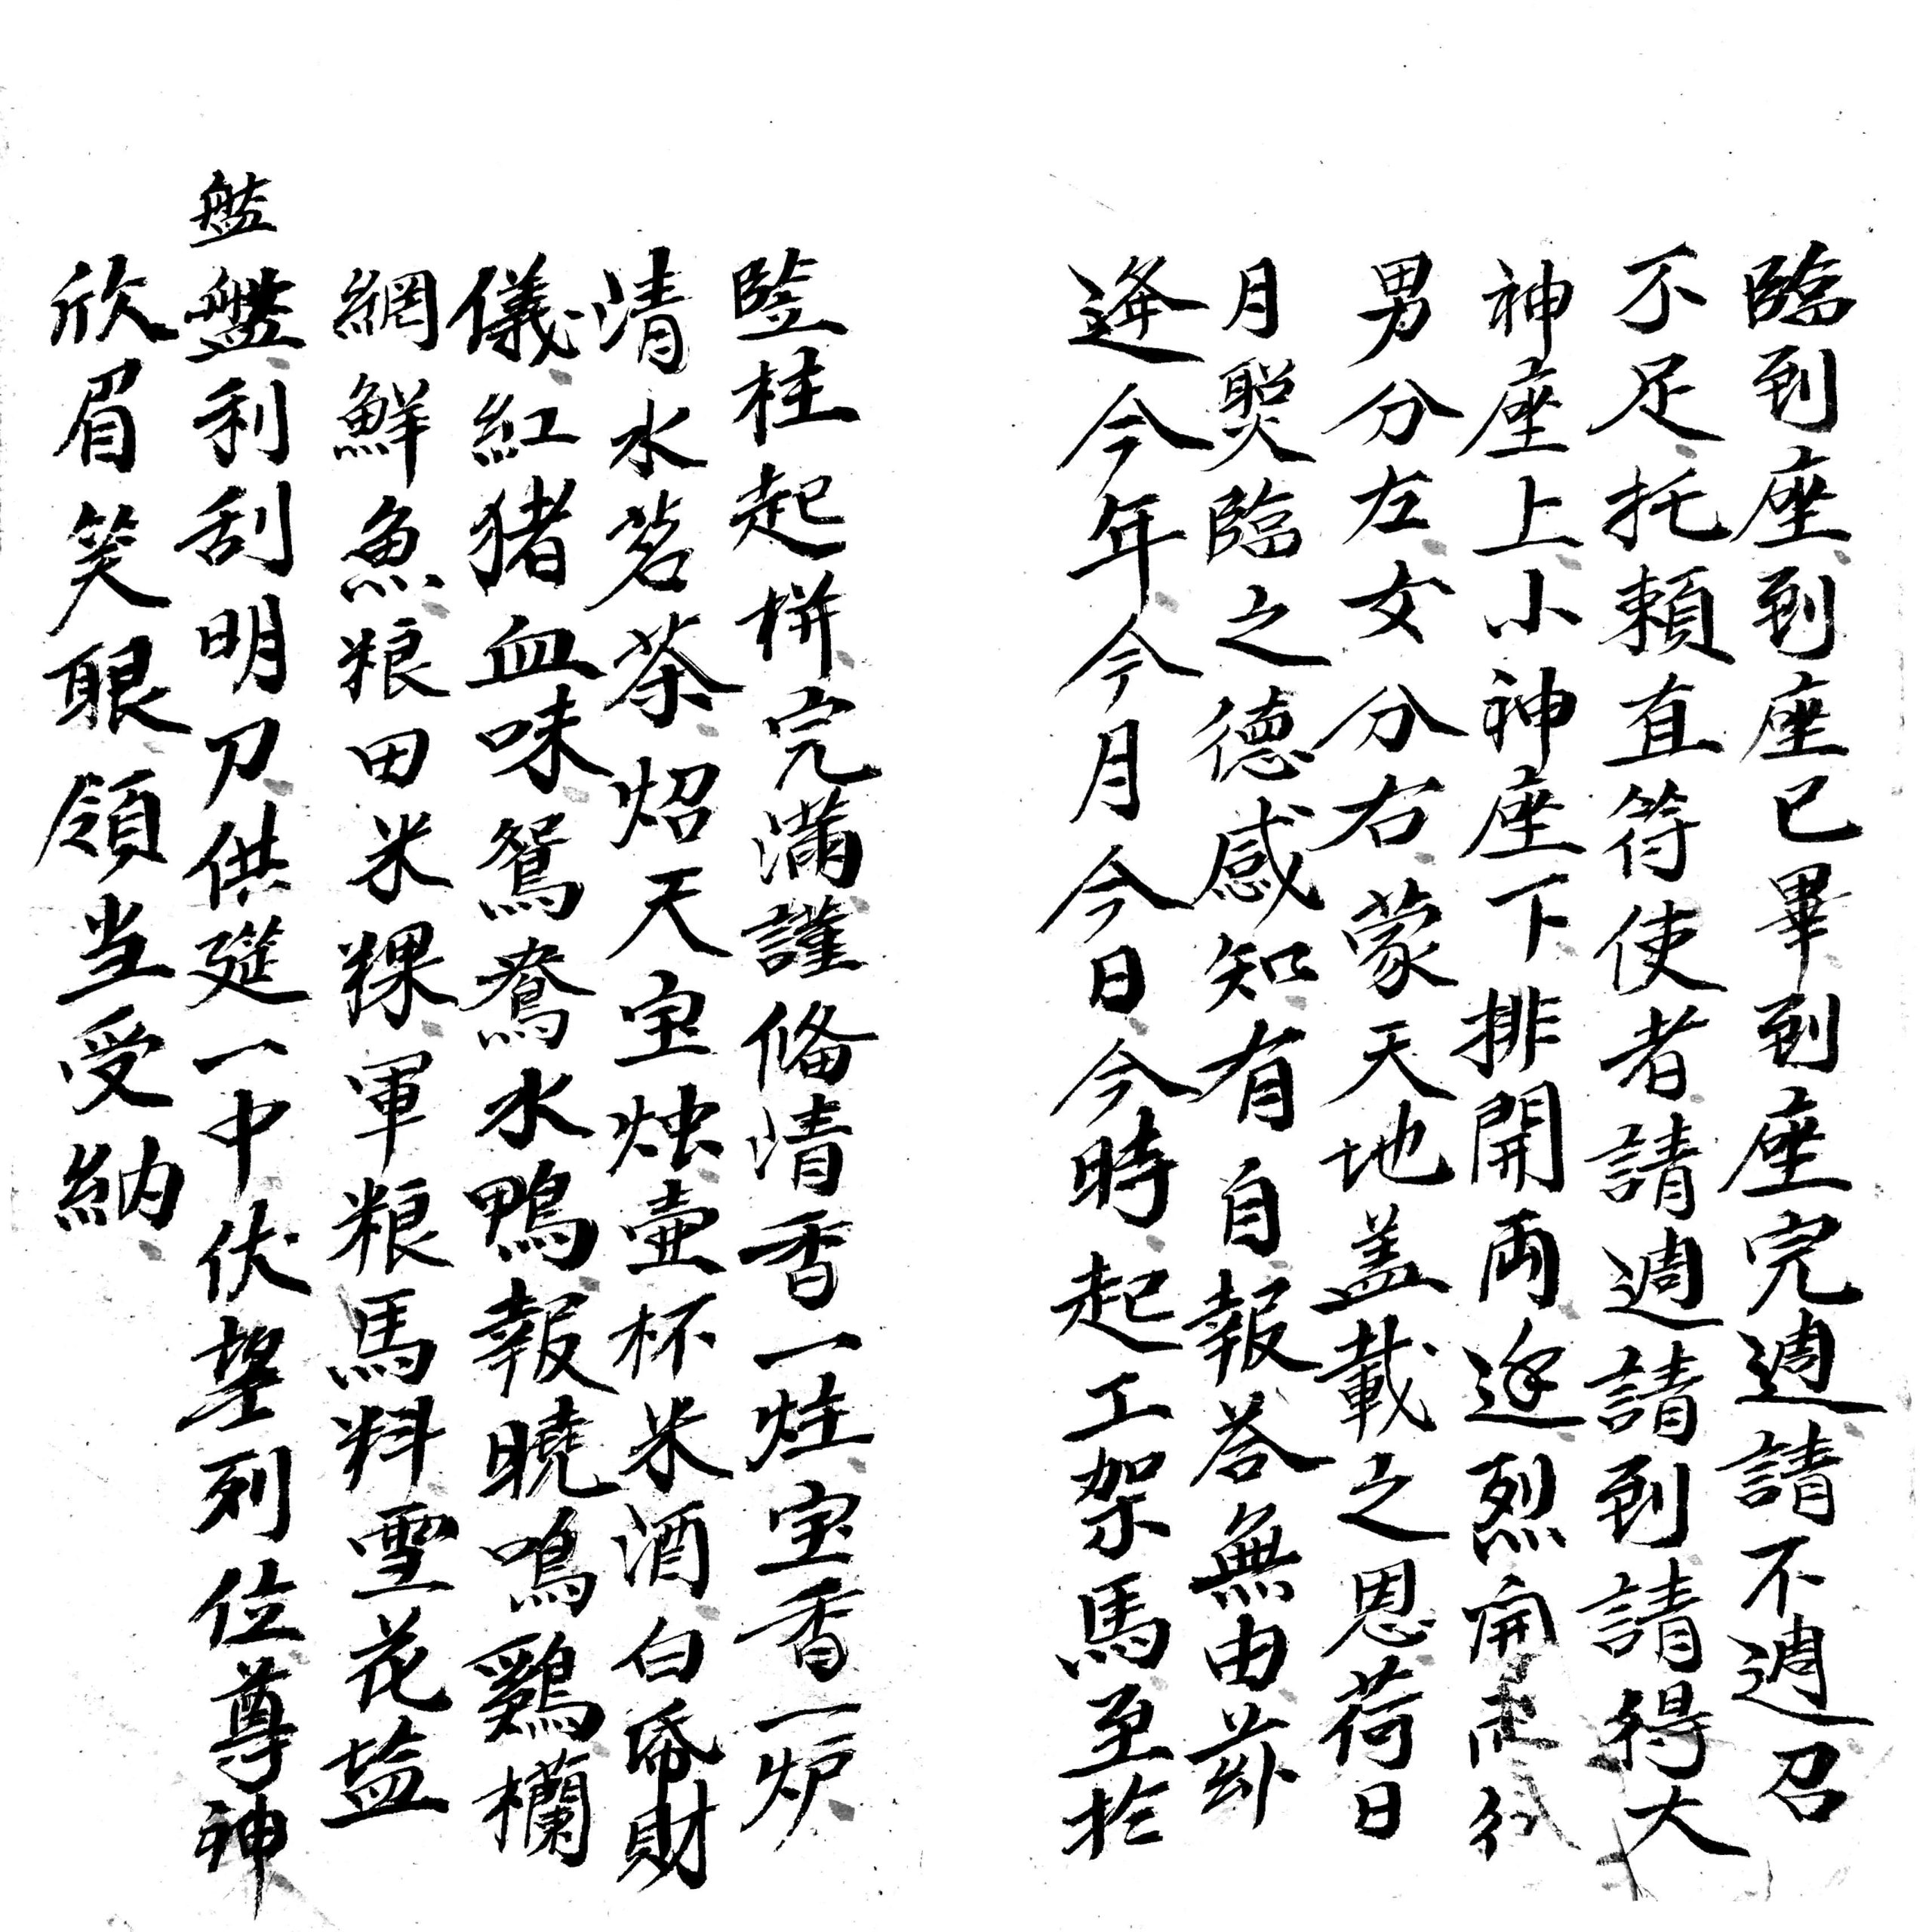 臨到座到座已畢到座完週請不週召
不足托頼直符使者請週請到請得大
神座上小神座下排開両途烈開両行
男分左女分右蒙天地盖載之恩荷日
月聚臨之德感知有自報荅無由茲
逄今年今月今日今時起工架馬至扵
監柱起栟完滿謹俻清香一炷宝香一炉
清水茗茶炤天宝烛壷杯米酒白帋財
儀紅猪血味鴛鴦水鴨報曉鳴鷄欄
網鮮魚粮田米粿軍粮馬料雪花盐
盤
盤利刮明刀供筵一中伏望列位尊神
欣眉笑眼領当受納